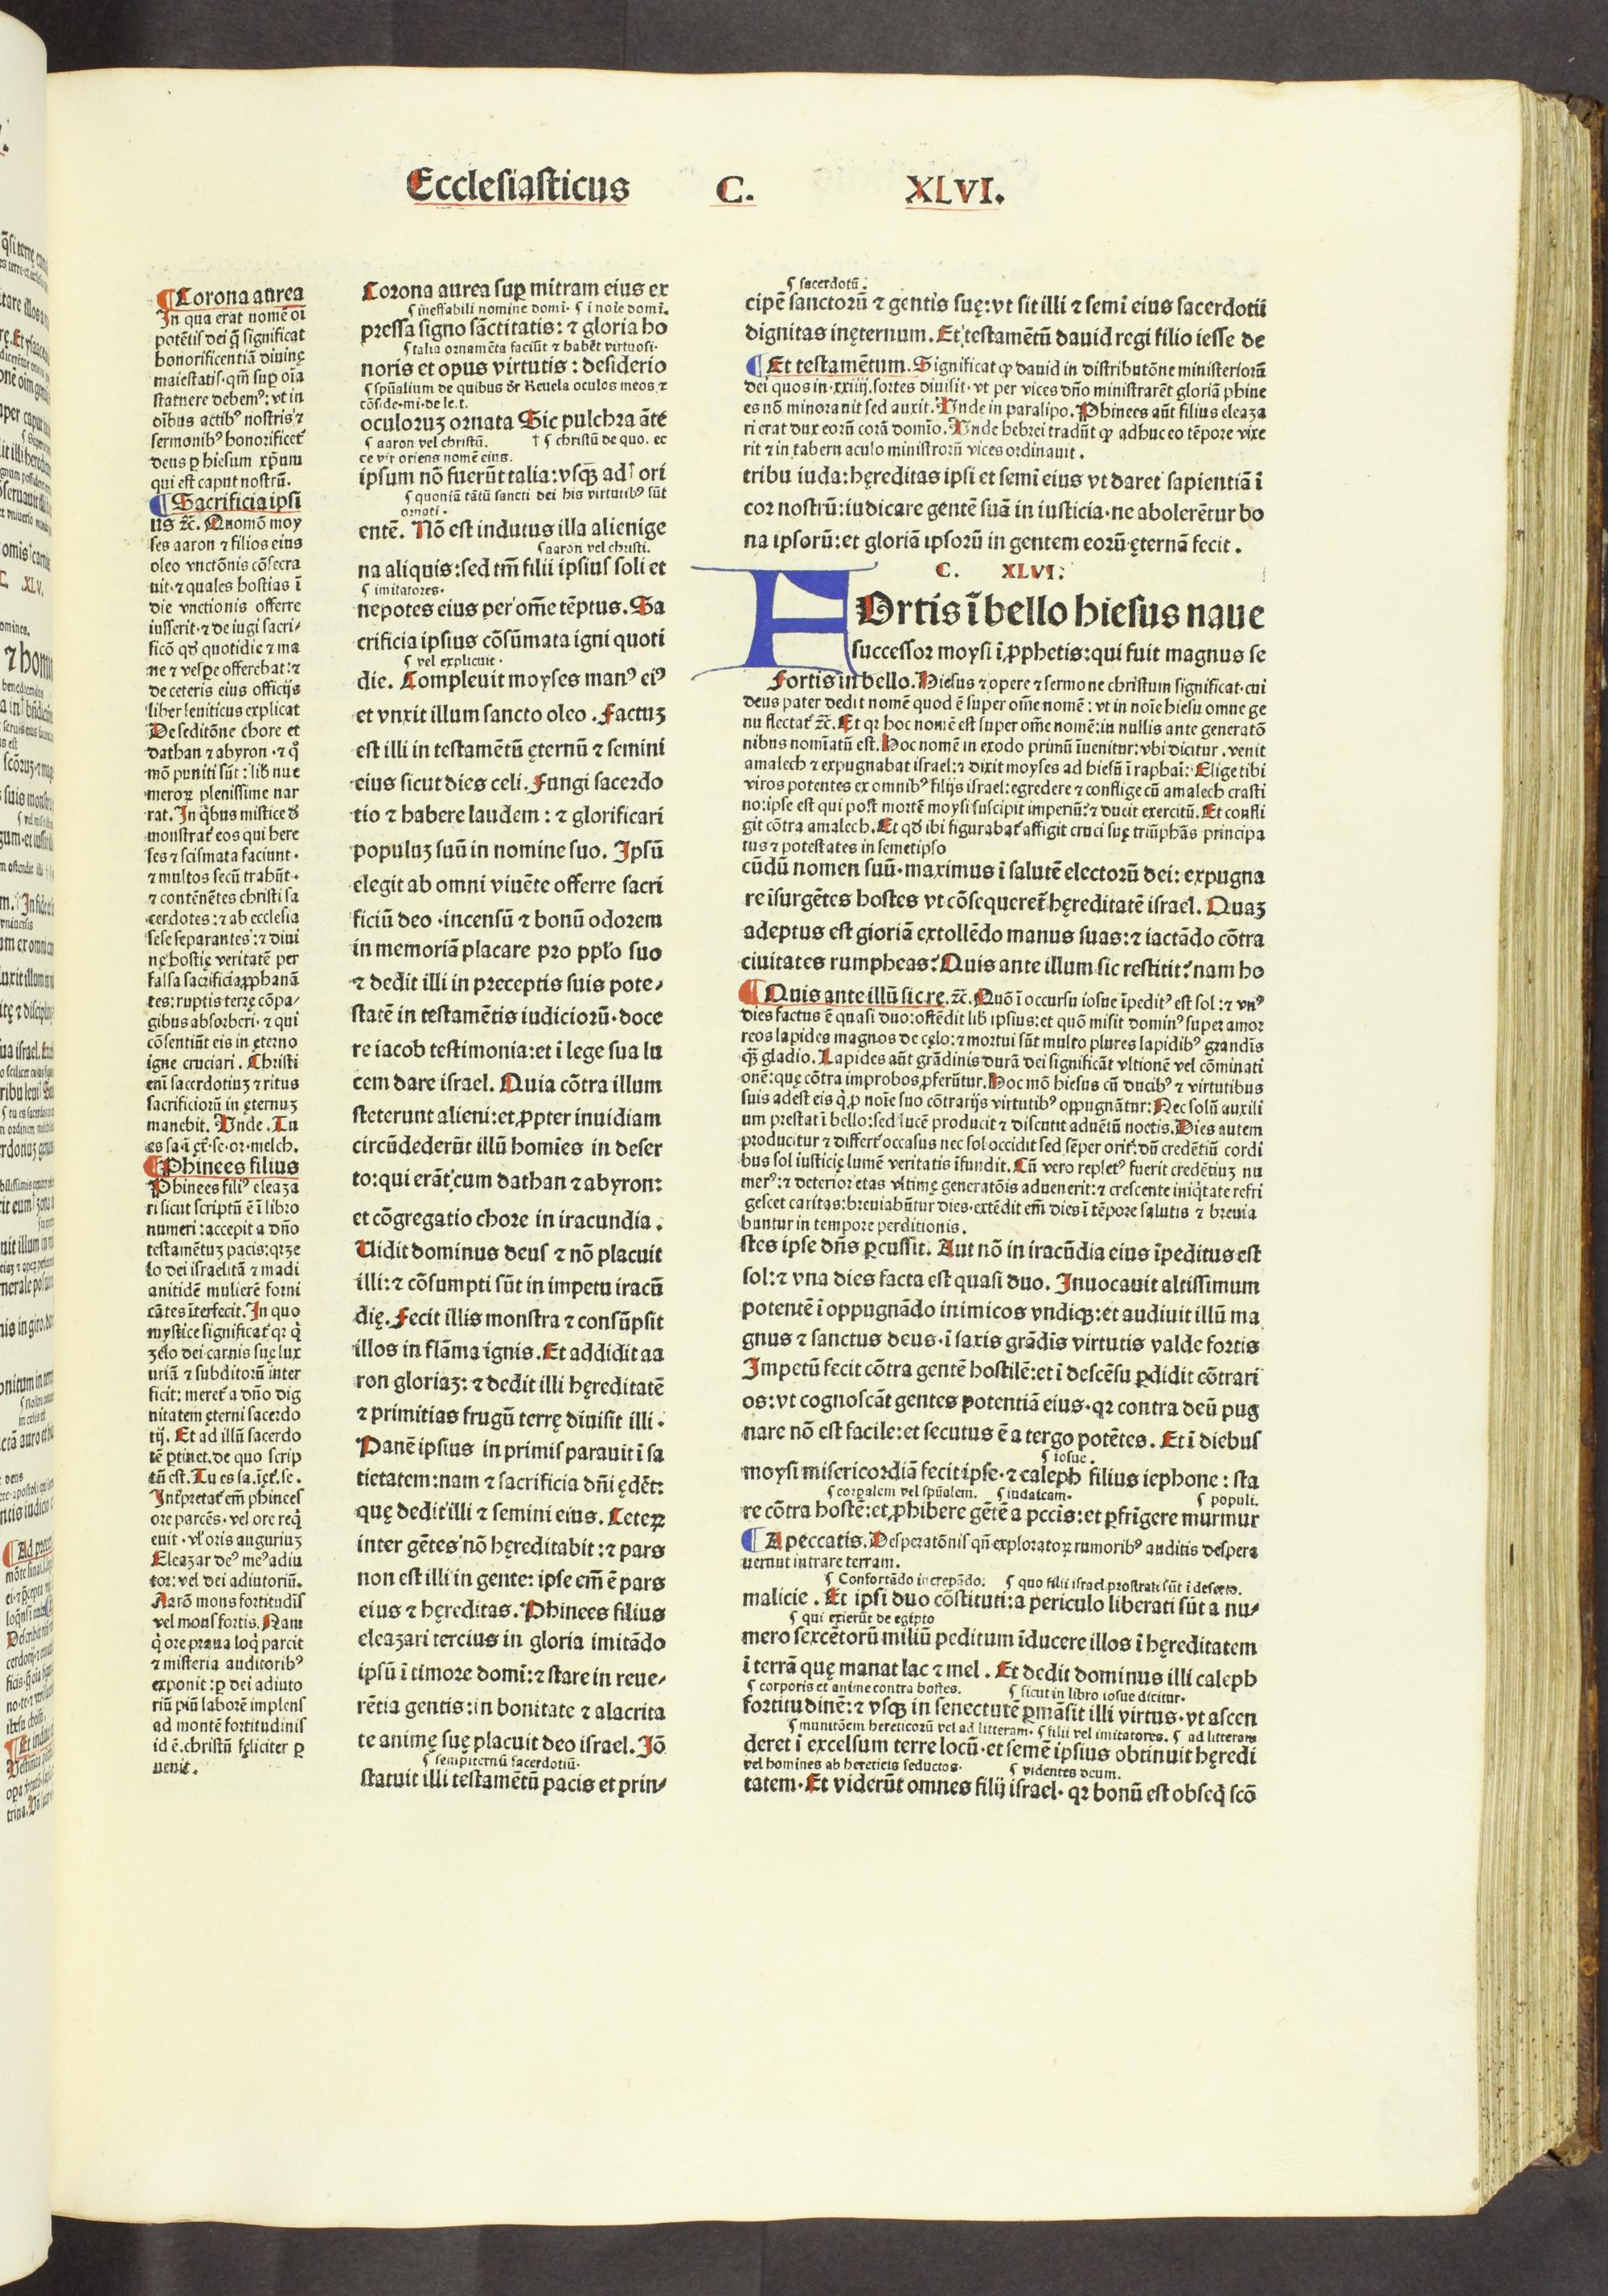 Ecclesiasticus C. XLVI.
¶Corona aurea
In qua erat nomē oī
potētis dei q̄ significat
bonorificentiā diuinę
maiestatis·qm̄ sup oīa
statuere debemꝰ: vt in
oībus actibꝰ nostris ⁊
sermonibꝰ honorificet᷑
deus ꝑ hiesum xp̄num
qui est caput nostrū.
¶Sacrificia ipsi
us ⁊c̄. Quomō moy
ses aaron ⁊ filios eius
oleo vnctōnis cōsecra
uit·⁊ quales hostias ī
die vnctionis offerre
iusserit·⁊ de iugi sacri/
ficō qd̛ quotidie ⁊ ma
ne ⁊ vesꝑe offerebat:⁊
de ceteris eius officijs
liber leuiticus explicat
De seditōne chore et
dathan ⁊ abyron ·⁊ q̊
mō puniti sūt : lib̄ nue
meroꝝ plenissime nar
rat. In q̇bus mistice d̛
monstrat᷑ eos qui here
ses ⁊ scismata faciunt·
⁊ multos secū trahūt·
⁊ contēnētes christi sa
cerdotes:⁊ ab ecclesia
sese separantes:⁊ diui
nę hostię veritatē per
falsa sacrificia ꝓphanā
tes: ruptis terrę cōpa/
gibus absorberi·⁊ qui
cōsentiūt eis in ęterno
igne cruciari . Christi
enī sacerdotiuꝫ ⁊ ritus
sacrificiorū in ęternuꝫ
manebit. Unde . Tu
es sa·ī ęt᷑·se·or·melch.
¶Phinees filius
Phinees filiꝰ eleaza
ri sicut scriptū ē ī libro
numeri : accepit a dn̄o
testamētuꝫ pacis:qꝛ ze
lo dei israelitā ⁊ madi
anitidē mulierē forni
cātes īterfecit. In quo
mystice significat᷑ qꝛ q̇
zelo dei carnis suę lux
uriā ⁊ subditorū inter
ficit: meret᷑ a dn̄o dig
nitatem ęterni sacerdo
tij. Et ad illū sacerdo
tē ꝑtinet, de quo scrip
tū est. Tu es sa.ī ęt᷑.se .
Int̄pretat᷑ em̄ phinees
ore parcēs · vel ore req̇
euit · vl̛ oris auguriuꝫ
Eleazar deꝰ meꝰ adiu
tor: vel dei adiutoriū.
Aarō mons fortitudis̄
vel mons fortis. Nam
q̇ ore praua loq̇ parcit
⁊ misteria auditoribꝰ
exponit : ꝑ dei adiuto
riū piū laborē implens
ad montē fortitudinis
id ē. christū fęliciter ꝑ
uenit.
Corona aurea suꝑ mitram eius ex
¶ ineffabili nomine domī· ¶ ī noīe domī.
pressa signo sāctitatis: ⁊ gloria ho
¶ talia ornamēta faciūt ⁊ habēt virtuosi·
noris et opus virtutis : desiderio
¶ spūalium de quibus dr̄ Reuela oculos meos ⁊
cōside·mi·de le.t.
oculoruꝫ ornata Sic pulchra āte
¶ aaron vel christū. † ¶ christū de quo. ec
ce vir oriens nomē eius.
ipsum nō fuerūt talia:vsqꝫ ad† ori
¶ quoniā tātū sancti dei his virtutibꝰ sūt
ornati·
entē. Nō est indutus illa alienige
¶ aaron vel christi.
na aliquis:sed tm̄ filii ipsius soli et
¶ imitatores·
nepotes eius per om̄e tēptus. Sa
crificia ipsius cōsūmata igni quoti
¶ vel explicuit·
die. Compleuit moyses manꝰ eiꝰ
et vnxit illum sancto oleo . Factuꝫ
est illi in testamētū ęternū ⁊ semini
eius sicut dies celi. Fungi sacerdo
tio ⁊ habere laudem : ⁊ glorificari
populuꝫ suū in nomine suo. Ipsū
elegit ab omni viuēte offerre sacri
ficiū deo ·incensū ⁊ bonū odorem
in memoriā placare pro pplo̅ suo
⁊ dedit illi in preceptis suis pote/
statē in testamētis iudiciorū·doce
re iacob testimonia:et ī lege sua lu
cem dare israel. Quia cōtra illum
steterunt alieni:et ꝓpter inuidiam
circūdederūt illū homīes in deser
to:qui erāt cum dathan ⁊ abyron:
et cōgregatio chore in iracundia.
Uidit dominus deus ⁊ nō placuit
illi:⁊ cōsumpti sūt in impetu iracū
dię. Fecit illis monstra ⁊ consūpsit
illos in flāma ignis. Et addidit aa
ron gloriaꝫ: ⁊ dedit illi hęreditatē
⁊ primitias frugū terrę diuisit illi·
Panē ipsius in primis parauit ī sa
tietatem:nam ⁊ sacrificia dn̄i ędēt:
quę dedit illi ⁊ semini eius. Ceteꝝ
inter gētes nō hęreditabit :⁊ pars
non est illi in gente: ipse em̄ ē pars
eius ⁊ hęreditas. Phinees filius
eleazari tercius in gloria imitādo
ipsū ī timore domī:⁊ stare in reue/
rētia gentis:in bonitate ⁊ alacrita
te animę suę placuit deo israel. Iō
¶ sempiternū sacerdotiū·
statuit illi testamētū pacis et prin/
¶ sacerdotū·
cipē sanctorū ⁊ gentis suę:vt sit illi ⁊ semī eius sacerdotii
dignitas inęternum. Et testamētū dauid regi filio iesse de
¶Et testamētum. Significat ꝙ dauid in distributōne ministeriorū
dei quos in·xxiiij.sortes diuisit·vt per vices dn̄o ministrarēt gloriā phine
es nō minorauit sed auxit. Unde in paralipo. Phinees aūt filius eleaza
ri erat dux eorū corā domīo. Unde hebrei tradūt ꝙ adhuc eo tēpore vixe
rit ⁊ in tabernaculo ministrorū vices ordinauit.
tribu iuda:hęreditas ipsi et semī eius vt daret sapientiā ī
cor nostrū:iudicare gentē suā in iusticia·ne abolerētur bo
na ipsorū:et gloriā ipsorū in gentem eorū ęternā fecit .
C. XLVI:
FOrtis ī bello hiesus naue
successor moysi ī ꝓphetis:qui fuit magnus se
Fortis in bello. Hiesus ⁊ opere ⁊ sermone christum significat·cui
deus pater dedit nomē quod ē super om̄e nomē : vt in noīe hiesu omne ge
nu flectat᷑ ⁊c̄. Et qꝛ hoc nomē est super om̄e nomē:in nullis ante generatō
nibus nomīatū est. Hoc nomē in exodo primū īuenitur:vbi dicitur .venit
amalech ⁊ expugnabat israel:⁊ dixit moyses ad hiesū ī raphaī: Elige tibi
viros potentes ex omnibꝰ filijs israel:egredere ⁊ conflige cū amalech crasti
no:ipse est qui post mortē moysi suscipit imperiū:⁊ ducit exercitū. Et confli
git cōtra amalech. Et qd̛ ibi figurabat᷑ affigit cruci suę triūphās principa
tus ⁊ potestates in semetipso
cūdū nomen suū·maximus ī salutē electorū dei: expugna
re īsurgētes hostes vt cōsequeret᷑ hęreditatē israel. Quaꝫ
adeptus est gioriā extollēdo manus suas:⁊ iactādo cōtra
ciuitates rumpheas? Quis ante illum sic restitit? nam ho
¶Quis ante illū sic re. ⁊c̄. Quō ī occursu iosue īpeditꝰ est sol :⁊ vnꝰ
dies factus ē quasi duo:ostēdit lib̄ ipsius:et quō misit dominꝰ super amor
reos lapides magnos de cęlo:⁊ mortui sūt multo plures lapidibꝰ grandīs
qꝫ̄ gladio. Lapides aūt grādinis durā dei significāt vltionē vel cōminati
onē:quę cōtra improbos ꝓferūtur. Hoc mō hiesus cū ducibꝰ ⁊ virtutibus
suis adest eis q̇ ꝓ noīe suo cōtrarijs virtutibꝰ oppugnātur: Nec solū auxili
um prestat ī bello:sed lucē producit ⁊ discutit aduētū noctis. Dies autem
producitur ⁊ differt᷑ occasus nec sol occidit sed sēper orit᷑: dū credētiū cordi
bus sol iusticię lumē veritatis īfundit. Cū vero repletꝰ fuerit credētiuꝫ nu
merꝰ:⁊ deterior etas vltimę generatōis aduenerit:⁊ crescente iniq̇tate refri
gescet caritas:breuiabūtur dies·extēdit em̄ dies ī tēpore salutis ⁊ breuia
buntur in tempore perditionis.
stes ipse dn̄s ꝑcussit. Aut nō in iracūdia eius īpeditus est
sol:⁊ vna dies facta est quasi duo. Inuocauit altissimum
potentē ī oppugnādo inimicos vndiqꝫ:et audiuit illū ma
gnus ⁊ sanctus deus·ī saxis grādīs virtutis valde fortis
Impetū fecit cōtra gentē hostilē:et ī descēsu ꝑdidit cōtrari
os:vt cognoscāt gentes potentiā eius·qꝛ contra deū pug
nare nō est facile:et secutus ē a tergo potētes. Et ī diebus
¶ iosue·
moysi misericordiā fecit ipse·⁊ caleph filius iephone : sta
¶ corꝑalem vel spūalem. ¶ iudaicam· ¶ populi.
re cōtra hostē:et ꝓhibere gētē a pccīs:et ꝑfrīgere murmur
¶A peccatis. Desperatōnis qn̄ exploratoꝝ rumoribꝰ auditis despera
uerunt intrare terram.
¶ Confortādo increpādo. ¶ quo filii israel prostrati sūt ī deserto.
malicie . Et ipsi duo cōstituti:a periculo liberati sūt a nu/
¶ qui exierūt de egipto
mero sexcētorū miliū peditum īducere illos ī hęreditatem
ī terrā quę manat lac ⁊ mel . Et dedit dominus illi caleph
¶ corporis et anime contra hostes. ¶ sicut in libro iosue dicitur·
fortitudinē:⁊ vsqꝫ in senectutē ꝑmāsit illi virtus·vt ascen
¶ munitōem hereticorū vel ad litteram· ¶ filii vel imitatores. ¶ ad litteram
deret ī excelsum terre locū·et semē ipsius obtinuit hęredi
vel homines ab hereticis seductos· ¶ videntes deum.
tatem·Et viderūt omnes filij israel· qꝛ bonū est obseq̇ scō